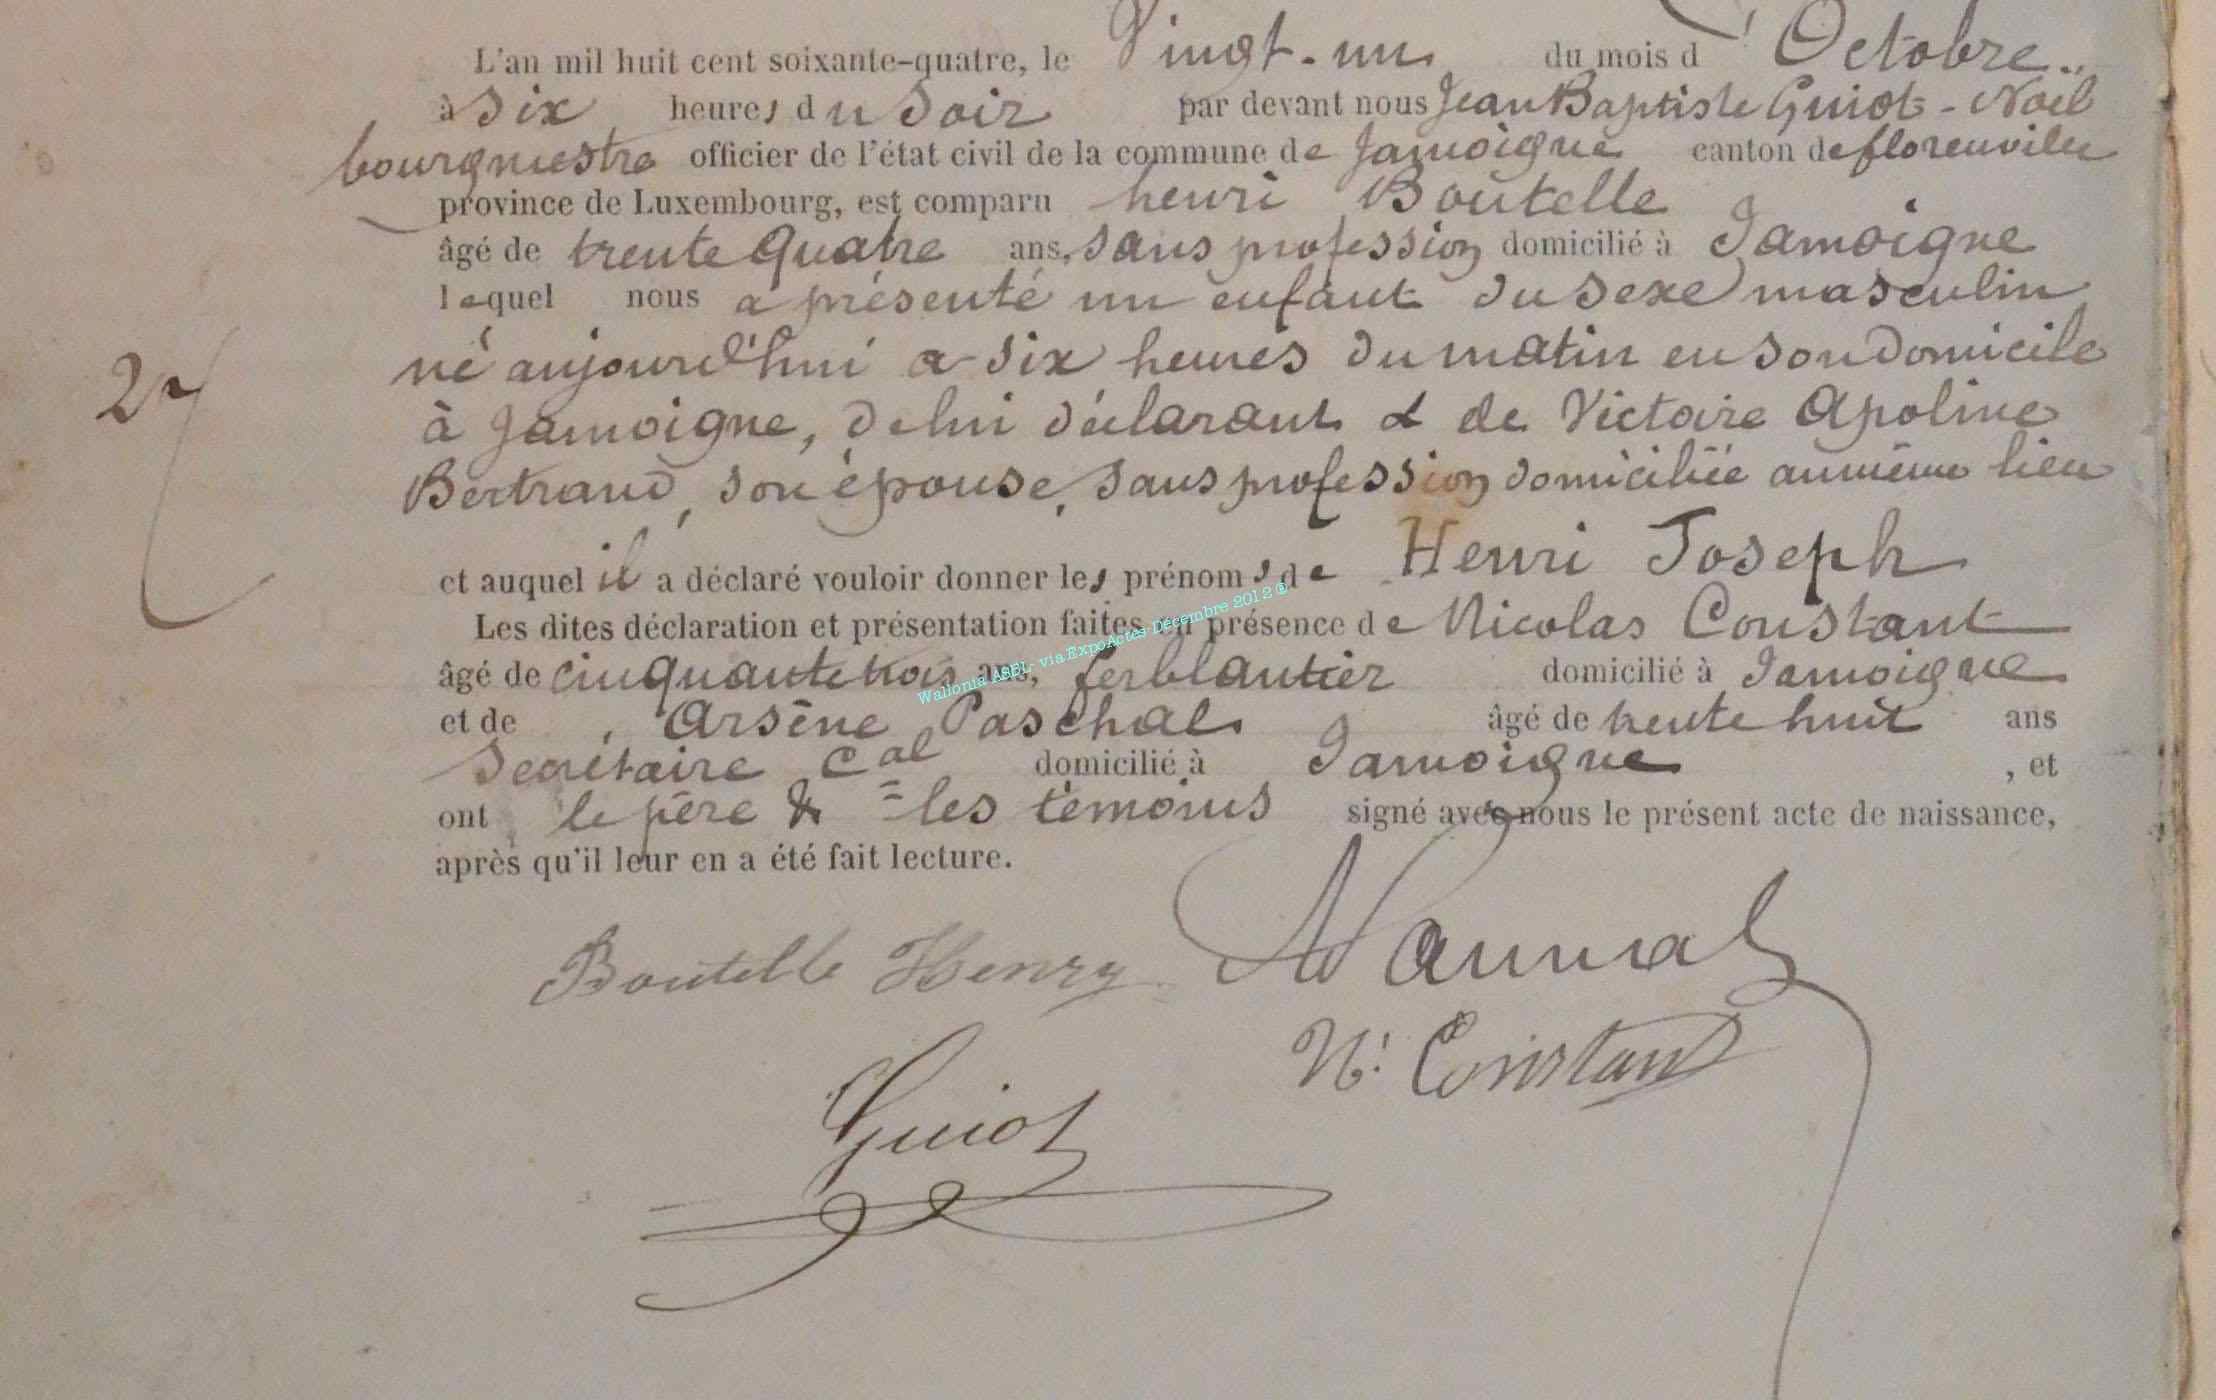 L'an mil huit cent soixante-quatre, le Vingt-un du mois d'Octobre
à six heures du soir par devant nous Jean Baptiste Guiot-Noël
bourgmestre officier de l'état civil de la commune de Jamoigne canton de florenville
province de Luxembourg, est comparu henri Boutelle
âgé de trente quatre ans, sans profession domicilié à Jamoigne
lequel nous a présenté un enfant du sexe masculin
né aujourd'hui a six heures du matin en son domicile
à Jamoigne, de lui déclarant & de Victoire Apoline
Bertrand, son épouse, sans profession domiciliée au même lieu
27
et auquel il a déclaré vouloir donner les prénoms de Henri Joseph
Les dites déclaration et présentation faites en présence de Nicolas Constant
âgé de cinquante trois ans, ferblantier domicilié à Jamoigne
Wallonia ASBL- via ExpoActes-Décembre 2012 @
et de Arsène Paschal âgé de trente huit ans
Secrétaire Cal domicilié à Jamoigne, et
ont le père & les témoins signé avec nous le présent acte de naissance,
après qu'il leur en a été fait lecture.
Boutelle Henry
N. Constant
Guiot